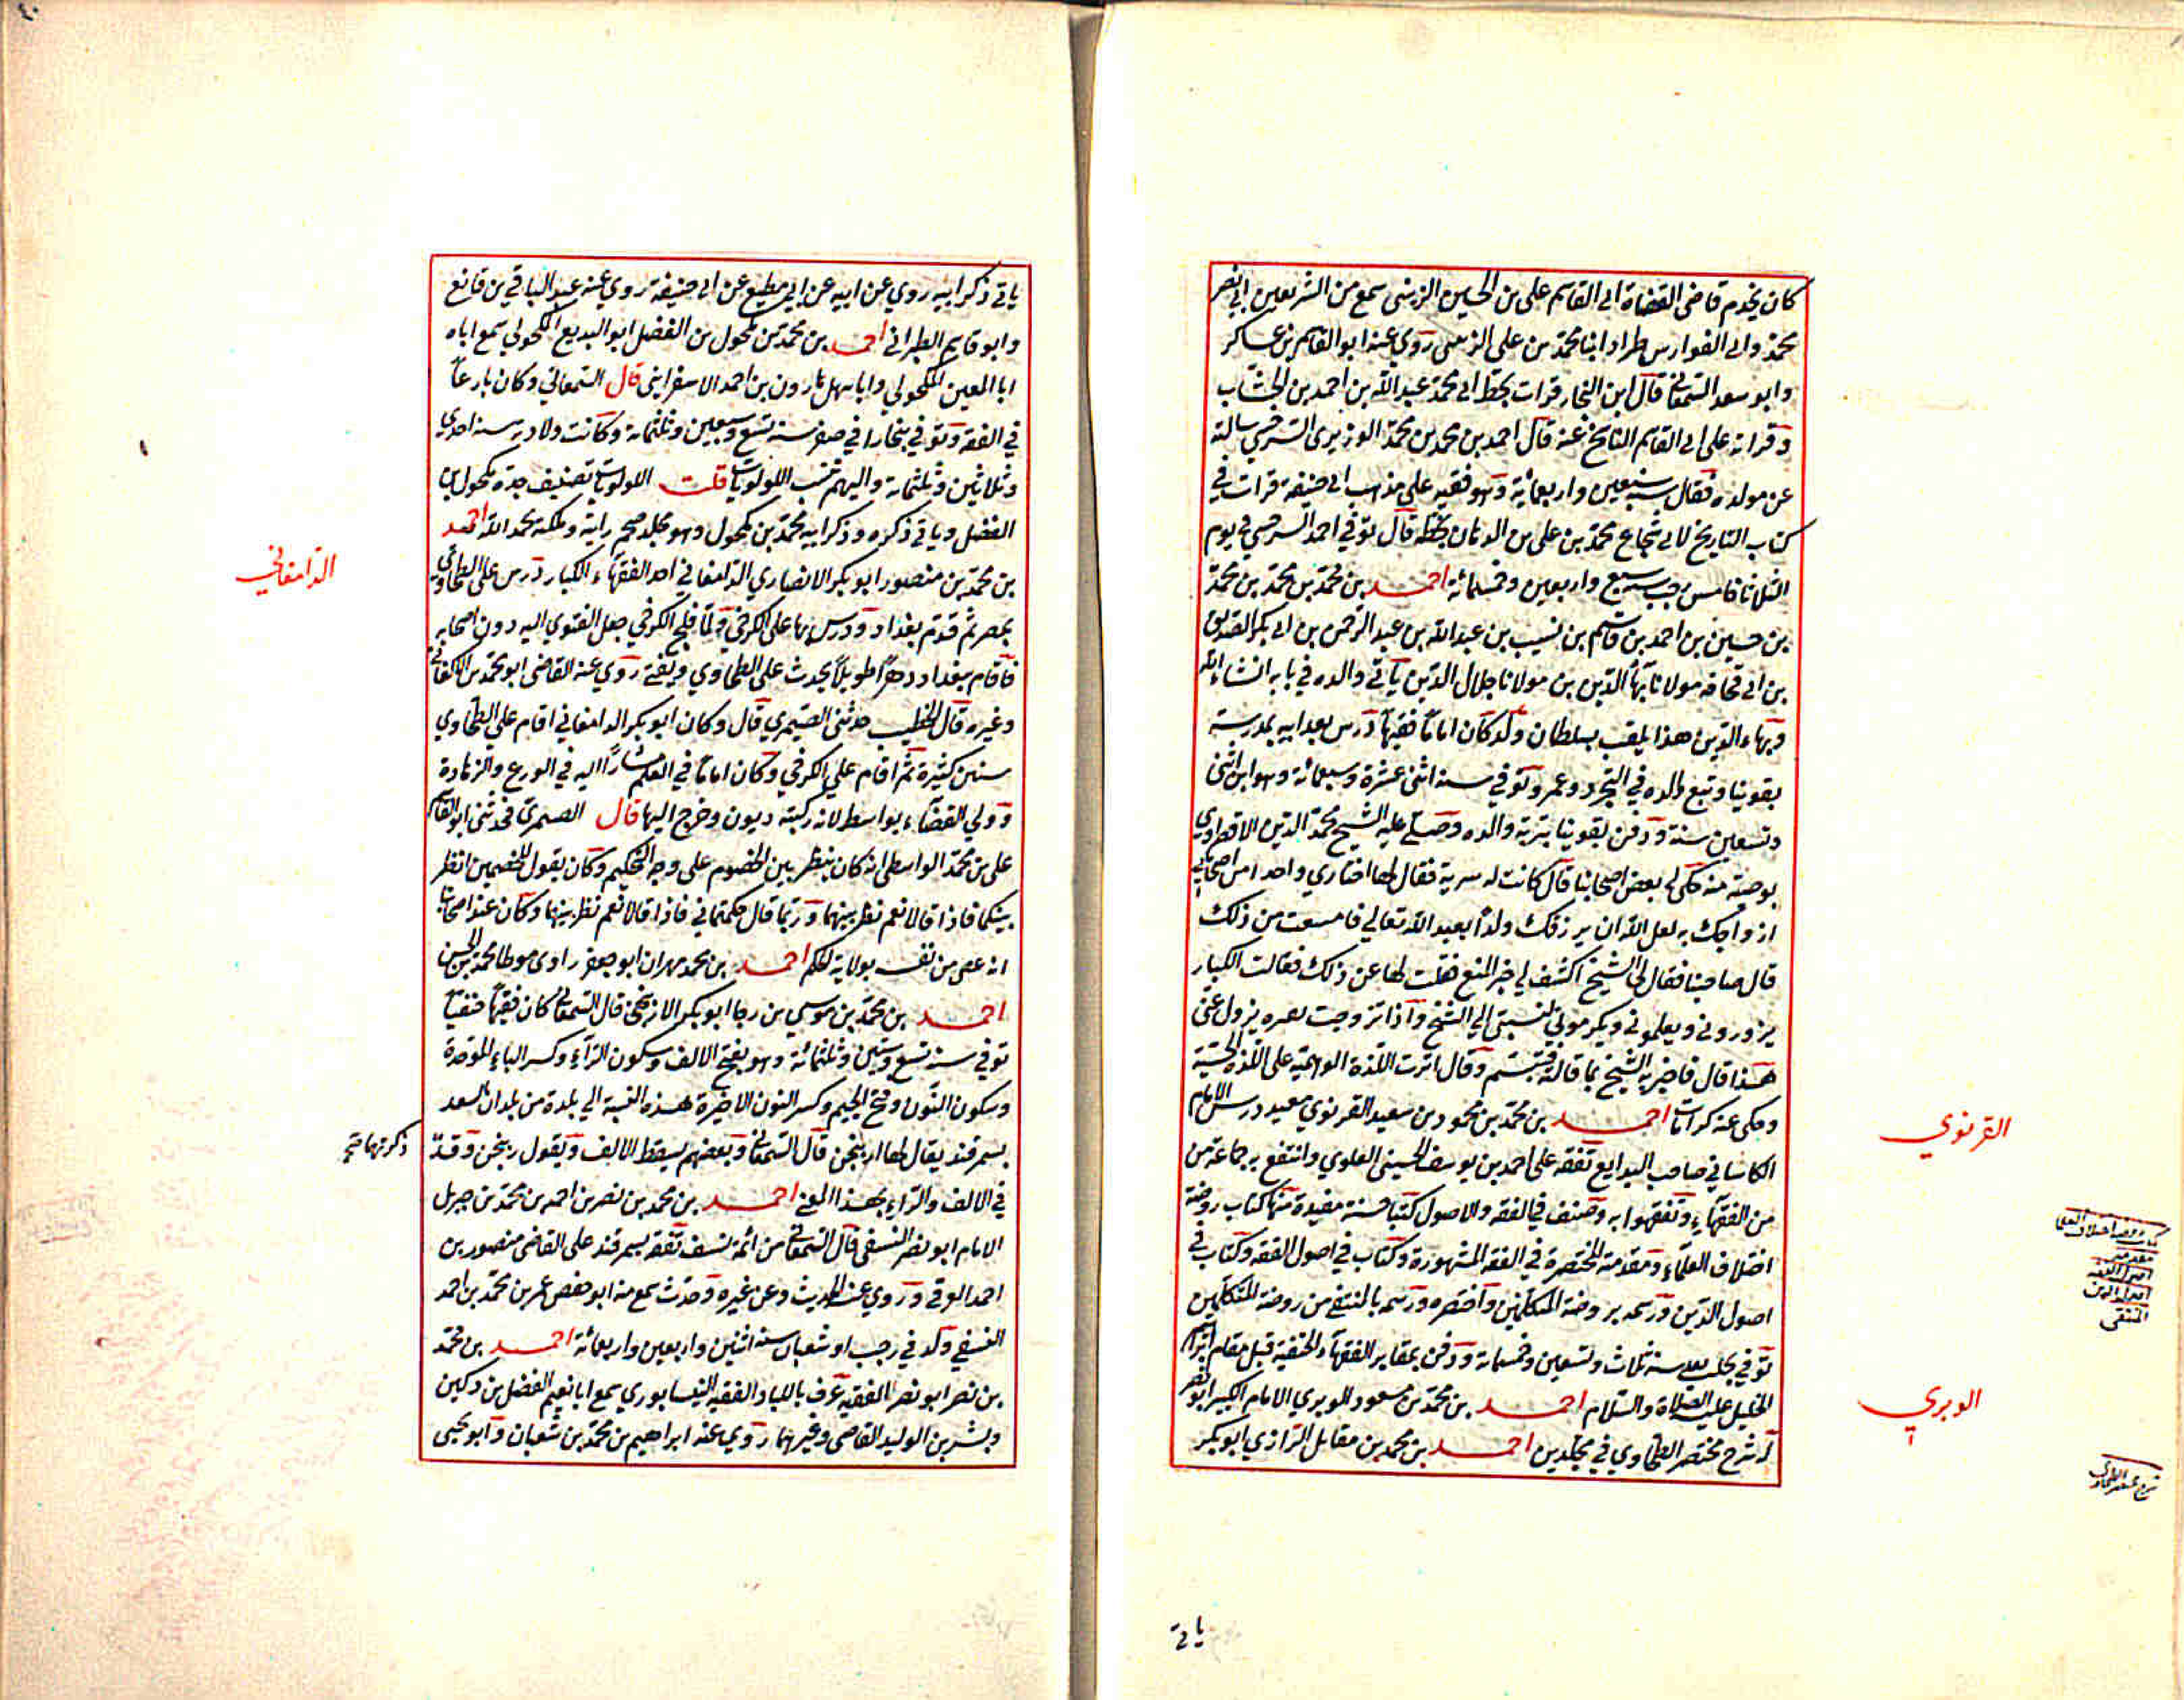 كان يخدم قاضى القضاة ابى القاسم على بن الحسين الزينبى سمع من الشريفين ابى نصر
محمد وابى الفوارس طراد ابنا محمد بن على الزينبى روى عنه ابو القاسم بن عساكر
وابو سعد السمعانى قال ابن النجار قرات بخط ابى محمد عبد الله بن احمد بن الخشاب
وقراته على ابى القاسم النابخ عنه قال احمد بن محمد بن محمد الوزيرى السرخسى سالته
عن مولده فقال سنة سبعين واربعمائة وهو فقيه على مذهب ابى حنيفة قرات فى
كتاب التاريخ لابى شجاع محمد بن على بن الدهان بخطه قال توفى احمد السرخسى فى يوم
الثلاثا خامس رجب سنة سبع واربعين وخمسمائة احمد بن محمد بن محمد بن محمد
بن حسين بن احمد بن قاسم بن نسيب بن عبد الله بن عبد الرحمن بن ابى بكر الصديق
بن ابى قحافه مولانا بهاً الدين بن مولانا جلال الدين ياتى والده فى بابه انشاء الله
وبهاء الدين هذا يلقب بسلطان ولد كان اماماً فقيهاً درس بعد ابيه بمدرسته
بقونيا وتبع والده فى التجرد وعمر وتوفى سنة اثنى عشرة وسبعمائة وهو ابن اثنى
وتسعين سنة ودفن بقونيا بتربة والده وصلى عليه الشيخ مجد الدين الاقصراوى
بوصية منه حكى لى بعض اصحابنا قال كانت له سرية فقال لها اختارى واحدا من اصحابى
ازواجك به لعل الله ان يرزقك ولداً يعبد الله تعالى فامتنعت من ذلك
قال صاحبنا فقال لى الشيخ اكشف لى خبر المنع فقلت لها عن ذلك فقالت الكبار
يزورونى ويعلمونى ويكرمونى لنسبتى الى الشيخ واذا تزوجت بغيره يزول عنى
هذا قال فاخبر به الشيخ بما قالته فتبسم وقال اثرت اللذة الوهمية على اللذة الحسية
وحكى عنه كرامات احمد بن محمد بن محمود بن سعيد الغزنوى معيد درس الامام
الكاسانى صاحب البدايع تفقه على احمد بن يوسف الحسينى العلوى وانتفع به جماعة من
من الفقهاء وتفقهوا به وصنف فى الفقه والاصول كتبا حسنة مفيدة منها كتاب روضة
اختلاف العلماء ومقدمته المختصرة فى الفقه المشهورة وكتاب فى اصول الفقه وكتاب فى
اصول الدين ورسمه بروضة المتكلمين واختصره ورسمه بالمنتقى من روضة المتكلمين
توفى بحلب بعد سنة ثلاث وتسعين وخمسمائة ودفن بمقابر الفقهاء الحنفية قبل مقام ابراهيم
الخليل عليه الصلاة والسلام احمد بن محمد بن مسعود الوبرى الامام الكبير ابو نصر
له شرح مختصر الطحاوى فى مجلدين احمد بن محمد بن مقاتل الرازى ابو بكر
الغزنوى
اصول الفقه
اصول الدين
المنتقى
الوبرى
شرح مختصر الطحاوى
ياتى
ياتى ذكر ابيه روى عن ابيه عن ابى مطيع عن ابى حنيفة روى عنه عبد الباقى بن قانع
وابو قاسم الطبرانى احمد بن محمد بن مكحول بن الفضل ابو البديع المكحولى سمع اباه
ابا المعين المكحولى وابا سهل هارون بن احمد الاسفراينى قال السمعانى وكان بارعاً
فى الفقه وتوفى ببخارا فى صفر سنة تسع وسبعين وثلثمائة وكانت ولادته سنة احدى
وثلاثين وثلثمائة واليهم تنسب اللولويات قلت اللولويات تصنيف جده مكحول بن
الفضل وياتى ذكره وذكر ابيه محمد بن مكحول وهو مجلد ضخم رايته وملكته بحمد الله احمد
بن محمد بن منصور ابو بكر الانصارى الدامغانى احد الفقهاء الكبار درس على الطحاوى
بمصر ثم قدم بغداد ودرس بها على الكرخى ولما فلج الكرخى جعل الفتوى اليه دون اصحابه
فاقام ببغداد دهراً طويلاً يحدث على الطحاوى ويفتى روى عنه القاضى ابو محمد بن الاكفانى
وغيره قال الخطيب حدثنى الصيمرى قال وكان ابو بكر الدامغانى اقام على الطحاوى
سنين كثيرة ثم اقام على الكرخى وكان اماماً فى العلم مشاراً اليه فى الورع والزهادة
وولى القضاء بواسط لانه ركبته ديون وخرج اليها قال الصيمرى فحدثنى ابو القاسم
على بن محمد الواسطى انه كان ينظر بين الخصوم على وجه التحكيم وكان يقول للخصمين انظر
بينكما فاذا قالا نعم نظر بينهما وربما قال حكمتمانى فاذا قالا نعم نظر بينهما وكان عند اصحابنا
انه غض من نفسه بولاية الحكم احمد بن محمد مهران ابو جعفر راوى موطا محمد بن الحسن
احمد بن محمد بن موسى بن رجا ابو بكر الاربنجنى قال السمعانى كان فقيهاً حنفياً
توفى سنة تسع وستين وثلثمائة وهو بفتح الالف وسكون الراء وكسر الباء الموحدة
وسكون النون وفتح الجيم وكسر النون الاخيرة هذه النسبة الى بلدة من بلدان السغد
بسمرقند يقال لها اربنجن قال السمعانى وبعضهم يسقط الالف ويقول ربنجن وقد
ذكرتها صح
فى الالف والراء بهذا المعنى احمد بن محمد بن نصر بن احمد بن محمد بن جبريل
الامام ابو نصر النسفى قال السمعانى من ائمة نسف تفقه بسمرقند على القاضى منصور بن
احمد العوفى وروى عنه الحديث وعن غيره وحدث سمع منه ابو حفص عمر بن محمد بن احمد
النسفى ولد فى رجب او شعبان سنة اثنين واربعين واربعمائة احمد بن محمد
بن نصر ابو نصر الفقيه عرف باللباد الفقيه النيسابورى سمع ابا نعيم الفضل بن دكين
وبشر بن الوليد القاضى وغيرهما روى عنه ابراهيم بن محمد بن شعبان وابو يحيى
الدامغانى
٤٠